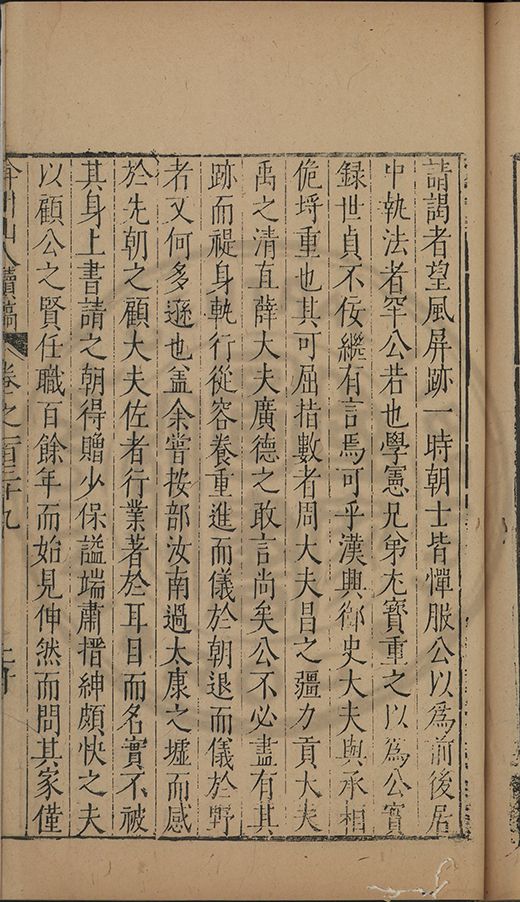 請謁者望風屏跡一時朝士皆憚服公以為前後居
中執法者罕公若也學憲兄弟尤寶重之以為公實
録世貞不佞繼有言焉可乎漢興御史大夫與丞相
佹埒重也其可屈指數者周大夫昌之彊力貢大夫
禹之清直薛大夫廣德之敢言尚矣公不必盡有其
跡而禔身軌行從容養重進而儀於朝退而儀於野
者又何多遜也盖余嘗按部汝南過太康之墟而感
於先朝之顧大夫佐者行業著於耳目而名實不被
其身上書請之朝得贈少保謚端肅搢紳頗快之夫
以顧公之賢任職百餘年而始見伸然而問其家僅
弇州山人續稿 卷之一百三十九